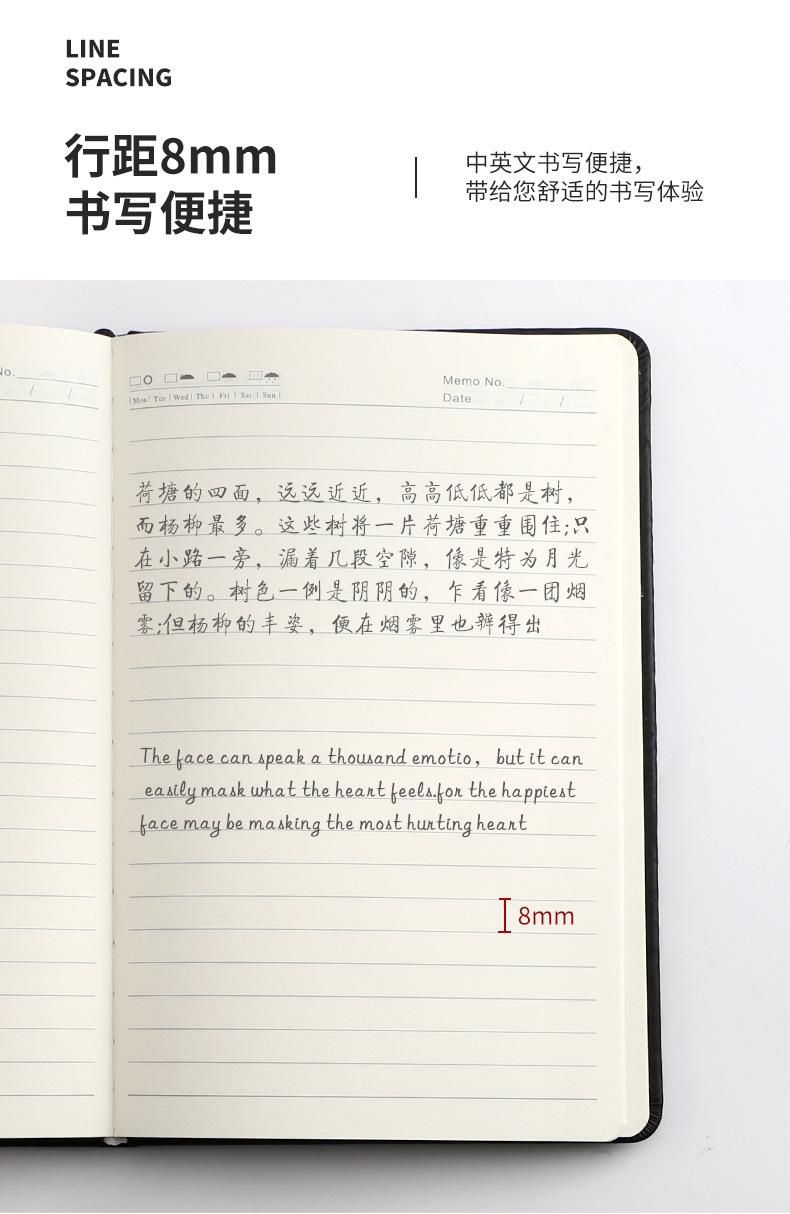 LINE
SPACING
行距8mm
书写便捷
中英文书写便捷，
带给您舒适的书写体验
No.
/ /
Mon Tue Wed Thu Fri Sat Sun
Memo No.
Date / /
荷塘的四面，远远近近，高高低低都是树，
而杨柳最多。这些树将一片荷塘重重围住;只
在小路一旁，漏着几段空隙，像是特为月光
留下的。树色一例是阴阴的，乍看像一团烟
雾;但杨柳的丰姿，便在烟雾里也辨得出
The face can speak a thousand emotio，but it can
easily mask what the heart feels.for the happiest
face may be masking the most hurting heart
8mm